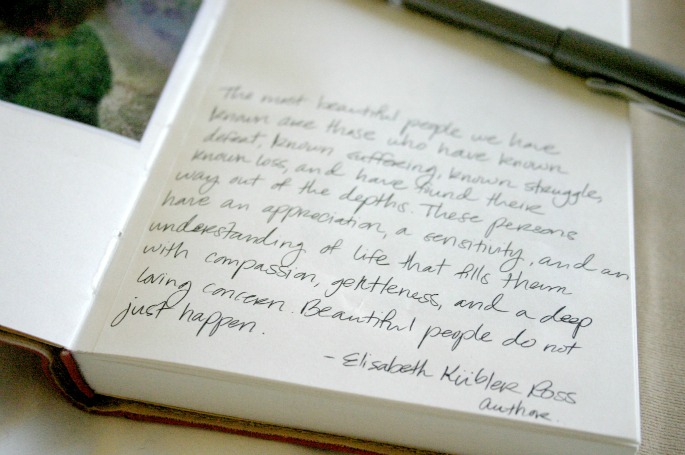 The most beautiful people we have
known are those who have known
defeat, known suffering, known struggle,
known loss, and have found their
way out of the depths. These persons
have an appreciation, a sensitivity, and an
understanding of life that fills them
with compassion, gentleness, and a deep
loving concern. Beautiful people do not
just happen.
- Elisabeth Kübler Ross
author.